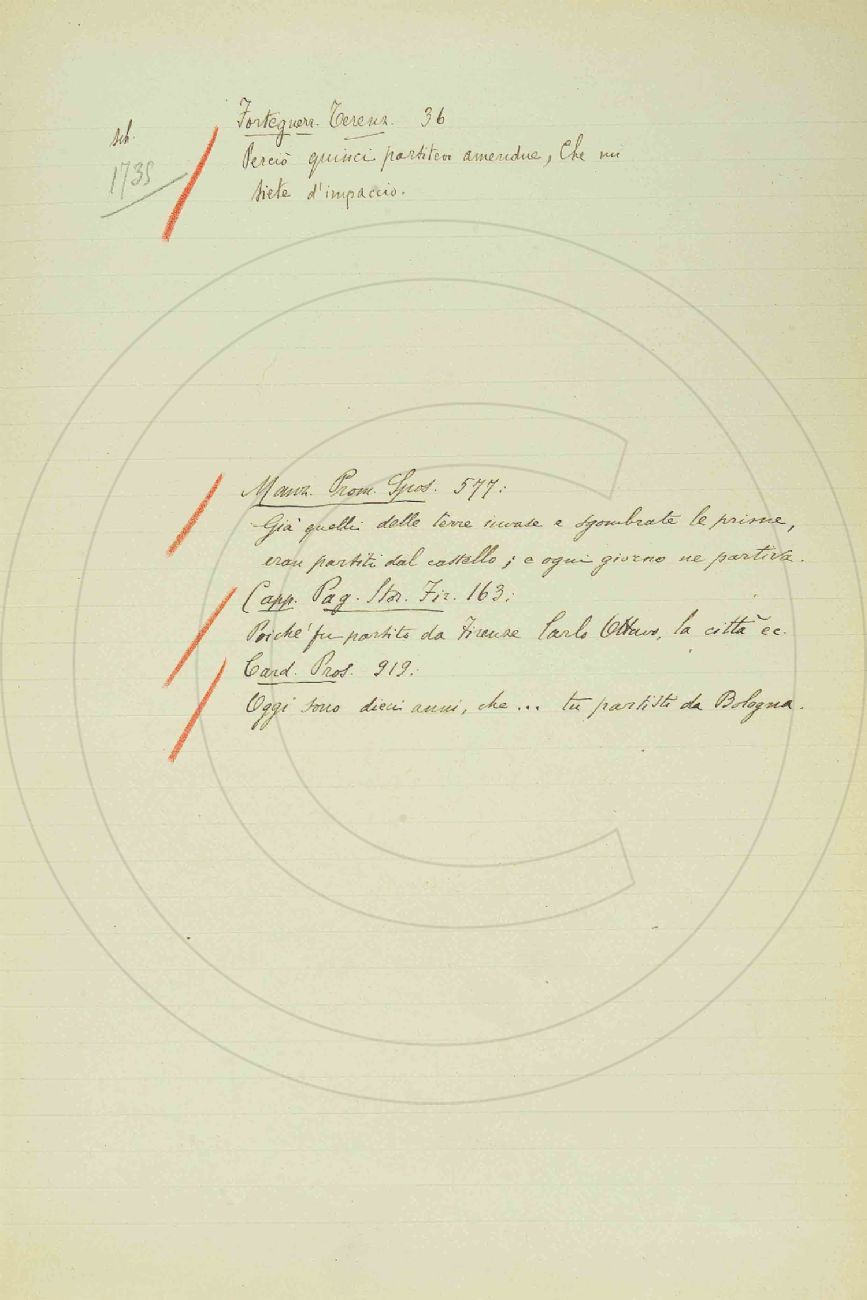 Forteguerr. Terenz. 36
sch.
Perciò quinci partitevi amendue, Che mi
1735
siete d'impaccio.
Manz. Prom. Spos. 577:
Già quelli delle terre invase e sgombrate le prime,
eran partiti dal castello; e ogni giorno ne partiva.
Capp. Pag. Stor. Fir. 163:
Poiché fu partito da Firenze Carlo Ottavo, la città ec.
Card. Pros. 919:
Oggi sono dieci anni, che ... tu partisti da Bologna.